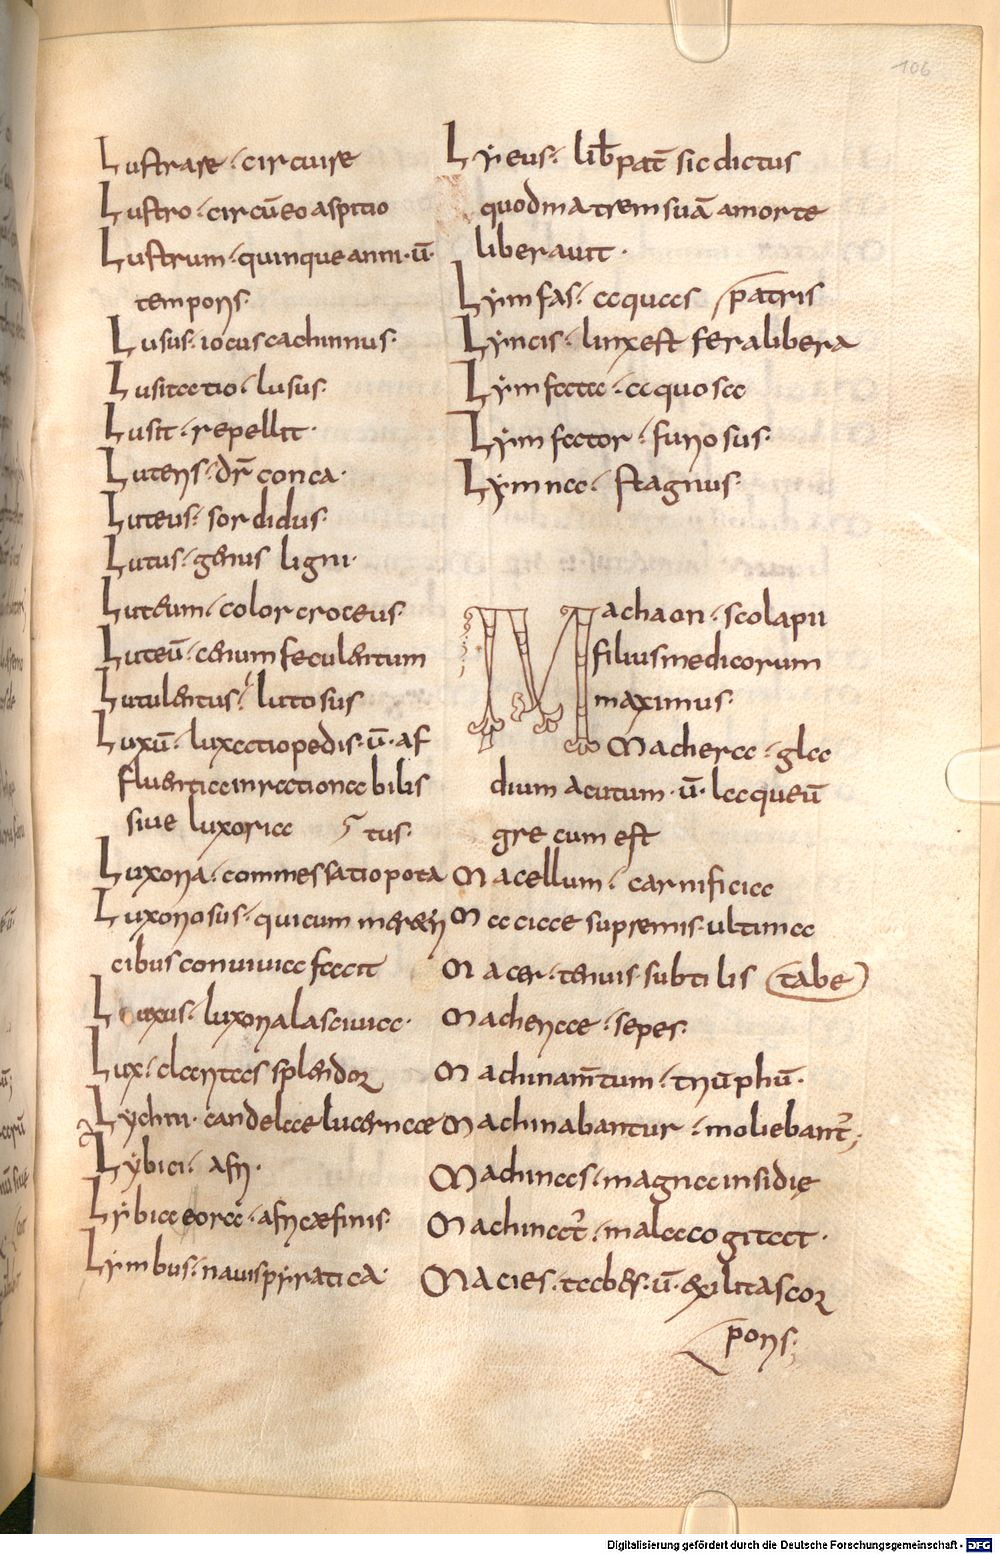 106
Lustrare · circuire
Lustro · circūeo aspitio
Lustrum · quinque anni · ū ·
temporis ·
Lusus · iocus cachinnus ·
Lusitatio · lusus ·
Lusit · repellit ·
Luteris · dr̄ conca ·
Luteus · sordidus ·
Lutus · genus ligni ·
Luteum · color croceus ·
Luteū · cenum feculentum
Lutulentus · luttosus
Luxū · luxatio pedis · ū · af
fluentia inrationabilis
siue luxoria tus ·
Luxoria · commessatio pota
Luxoriosus · qui cum meretri
cibus conuiuia facit
Luxus · luxoria lasciuia ·
Lux · claritas splendor
Lychni · candelae lucernae
Lÿbici · afri ·
Lÿbicae orae · africae finis ·
Lÿmbus · nauis pÿratica ·
Lÿeus · lib̄ pat̄ sic dictus
quod matrem suā a morte
liberauit ·
Lÿmfas · aquas patris
Lÿncis · linx est fera libera
Lÿmfata · aquosa
Lÿmfator · furiosus ·
Lÿmna · stagnus ·
Machaon · scolapii
filius medicorum
maximus ·
Machera · gla
dium acutum · ū · laqueū
grecum est
Macellum · carnificia
Maciae supremis · ultima
Macer · tenuis · subtilis tabe
Macheriae · sepes ·
Machinam̄tum · triūphū ·
Machinabantur · moliebant̄ ;
Machinas · magna insidię
Machinat̄ · mala cogitat ·
Macies · tabes · ū · exilitas cor
poris ;
Digitalisierung gefördert durch die Deutsche Forschungsgemeinschaft - DFG